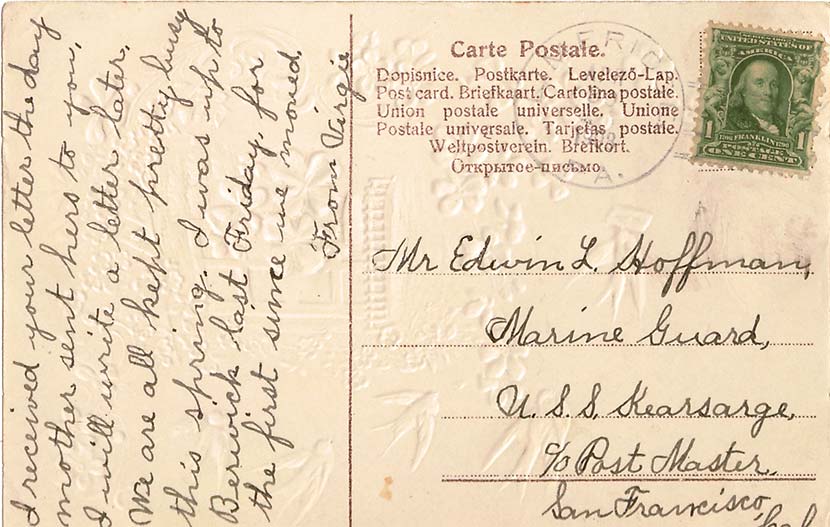 I received your letter the day
mother sent hers to you,
I will write a letter later.
We are all kept pretty busy
this spring. I was up to
Berwick last Friday, for
the first since we moved.
From Virgie
Carte Postale.
Dopisnice. Postkarte. Levelező-Lap.
Post card. Briefkaart. Cartolina postale.
Union postale universelle. Unione
Postale universale. Tarjetas postale.
Weltpostverein. Brefkort.
Открытое-письмо
PA.
UNITED STATES OF
AMERICA
1 FRANKLIN 1
POSTAGE
ONE CENT
Mr Edwin L. Hoffman,
Marine Guard,
U.S.S. Kearsarge,
c/o Post Master,
San Francisco,
Cal